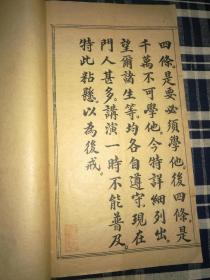 四條。是要必須學他。後四條。是
千萬不可學他。今特詳細列出。
望爾諸生等。均各自遵守。現在
門人甚多。講演一時不能普及。
特此粘懸。以為後戒。